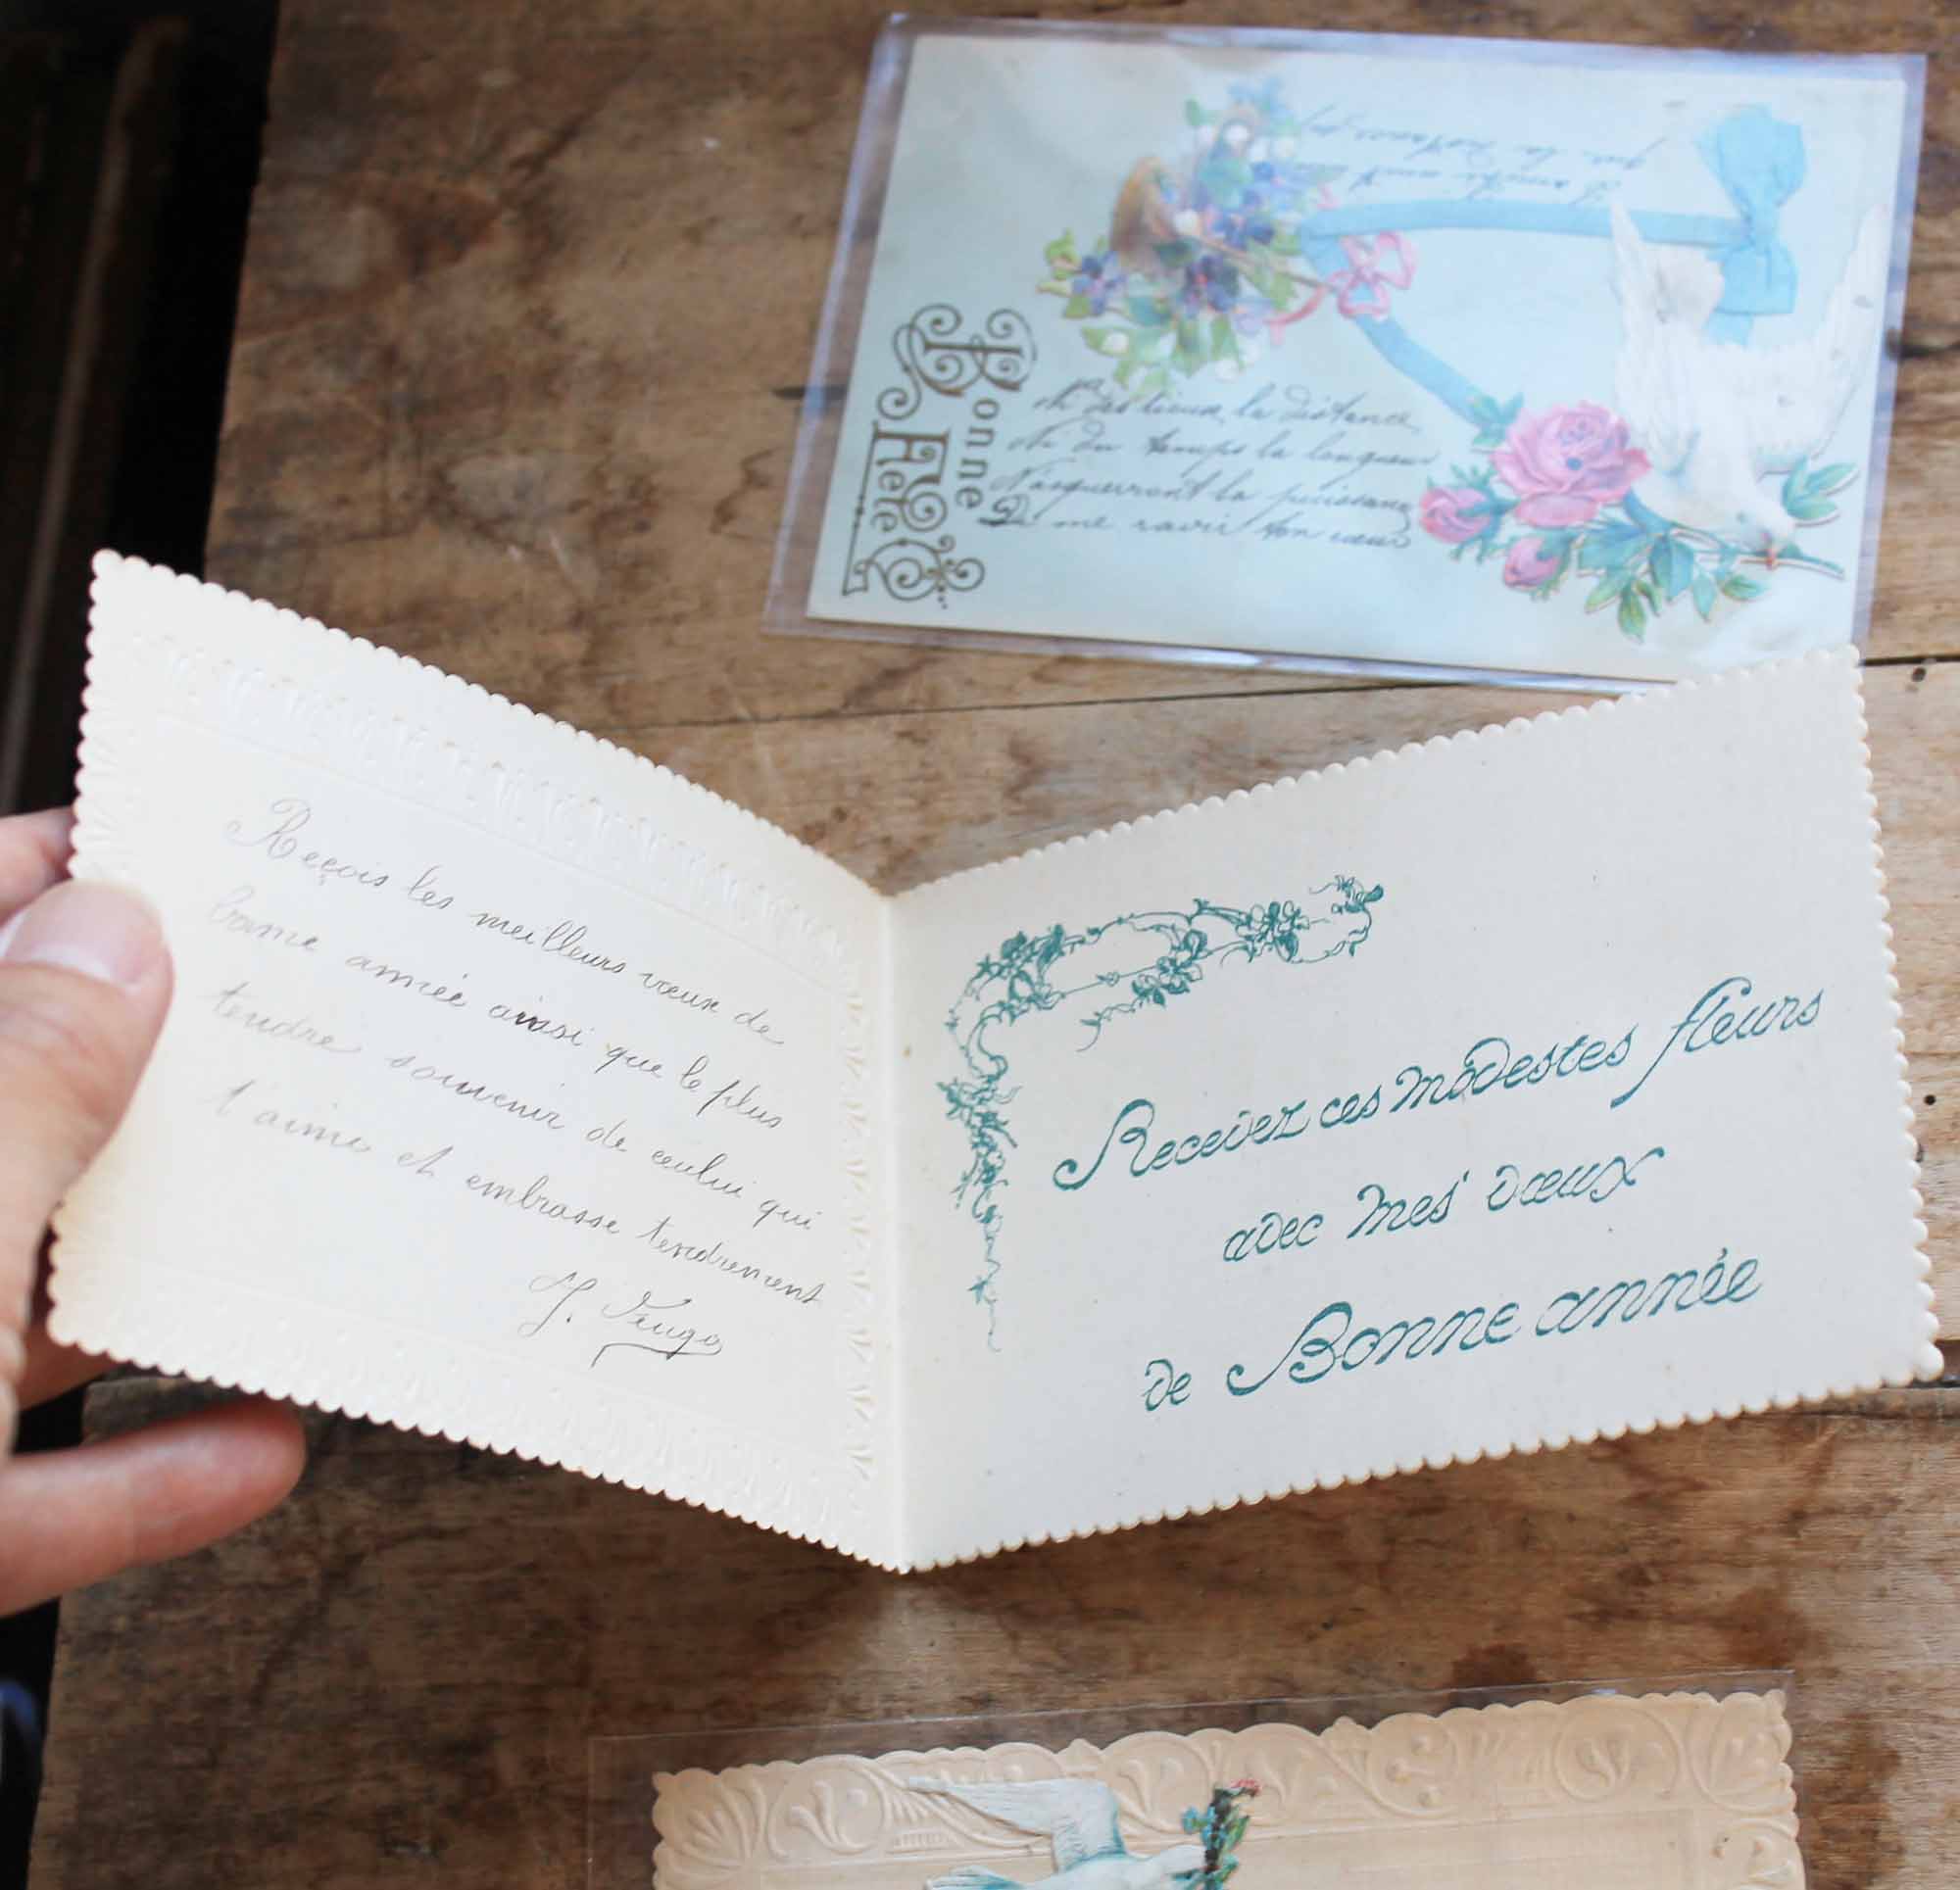 Bonne
Fête
Ni des lieux, la distance
Ni du temps la longueur
N'acquerront la puissance
De me ravir ton cœur
que la distance
Reçois les meilleurs vœux de
bonne année ainsi que le plus
tendre souvenir de celui qui
t'aime et embrasse tendrement
Recevez ces modestes fleurs
avec mes vœux
de Bonne année